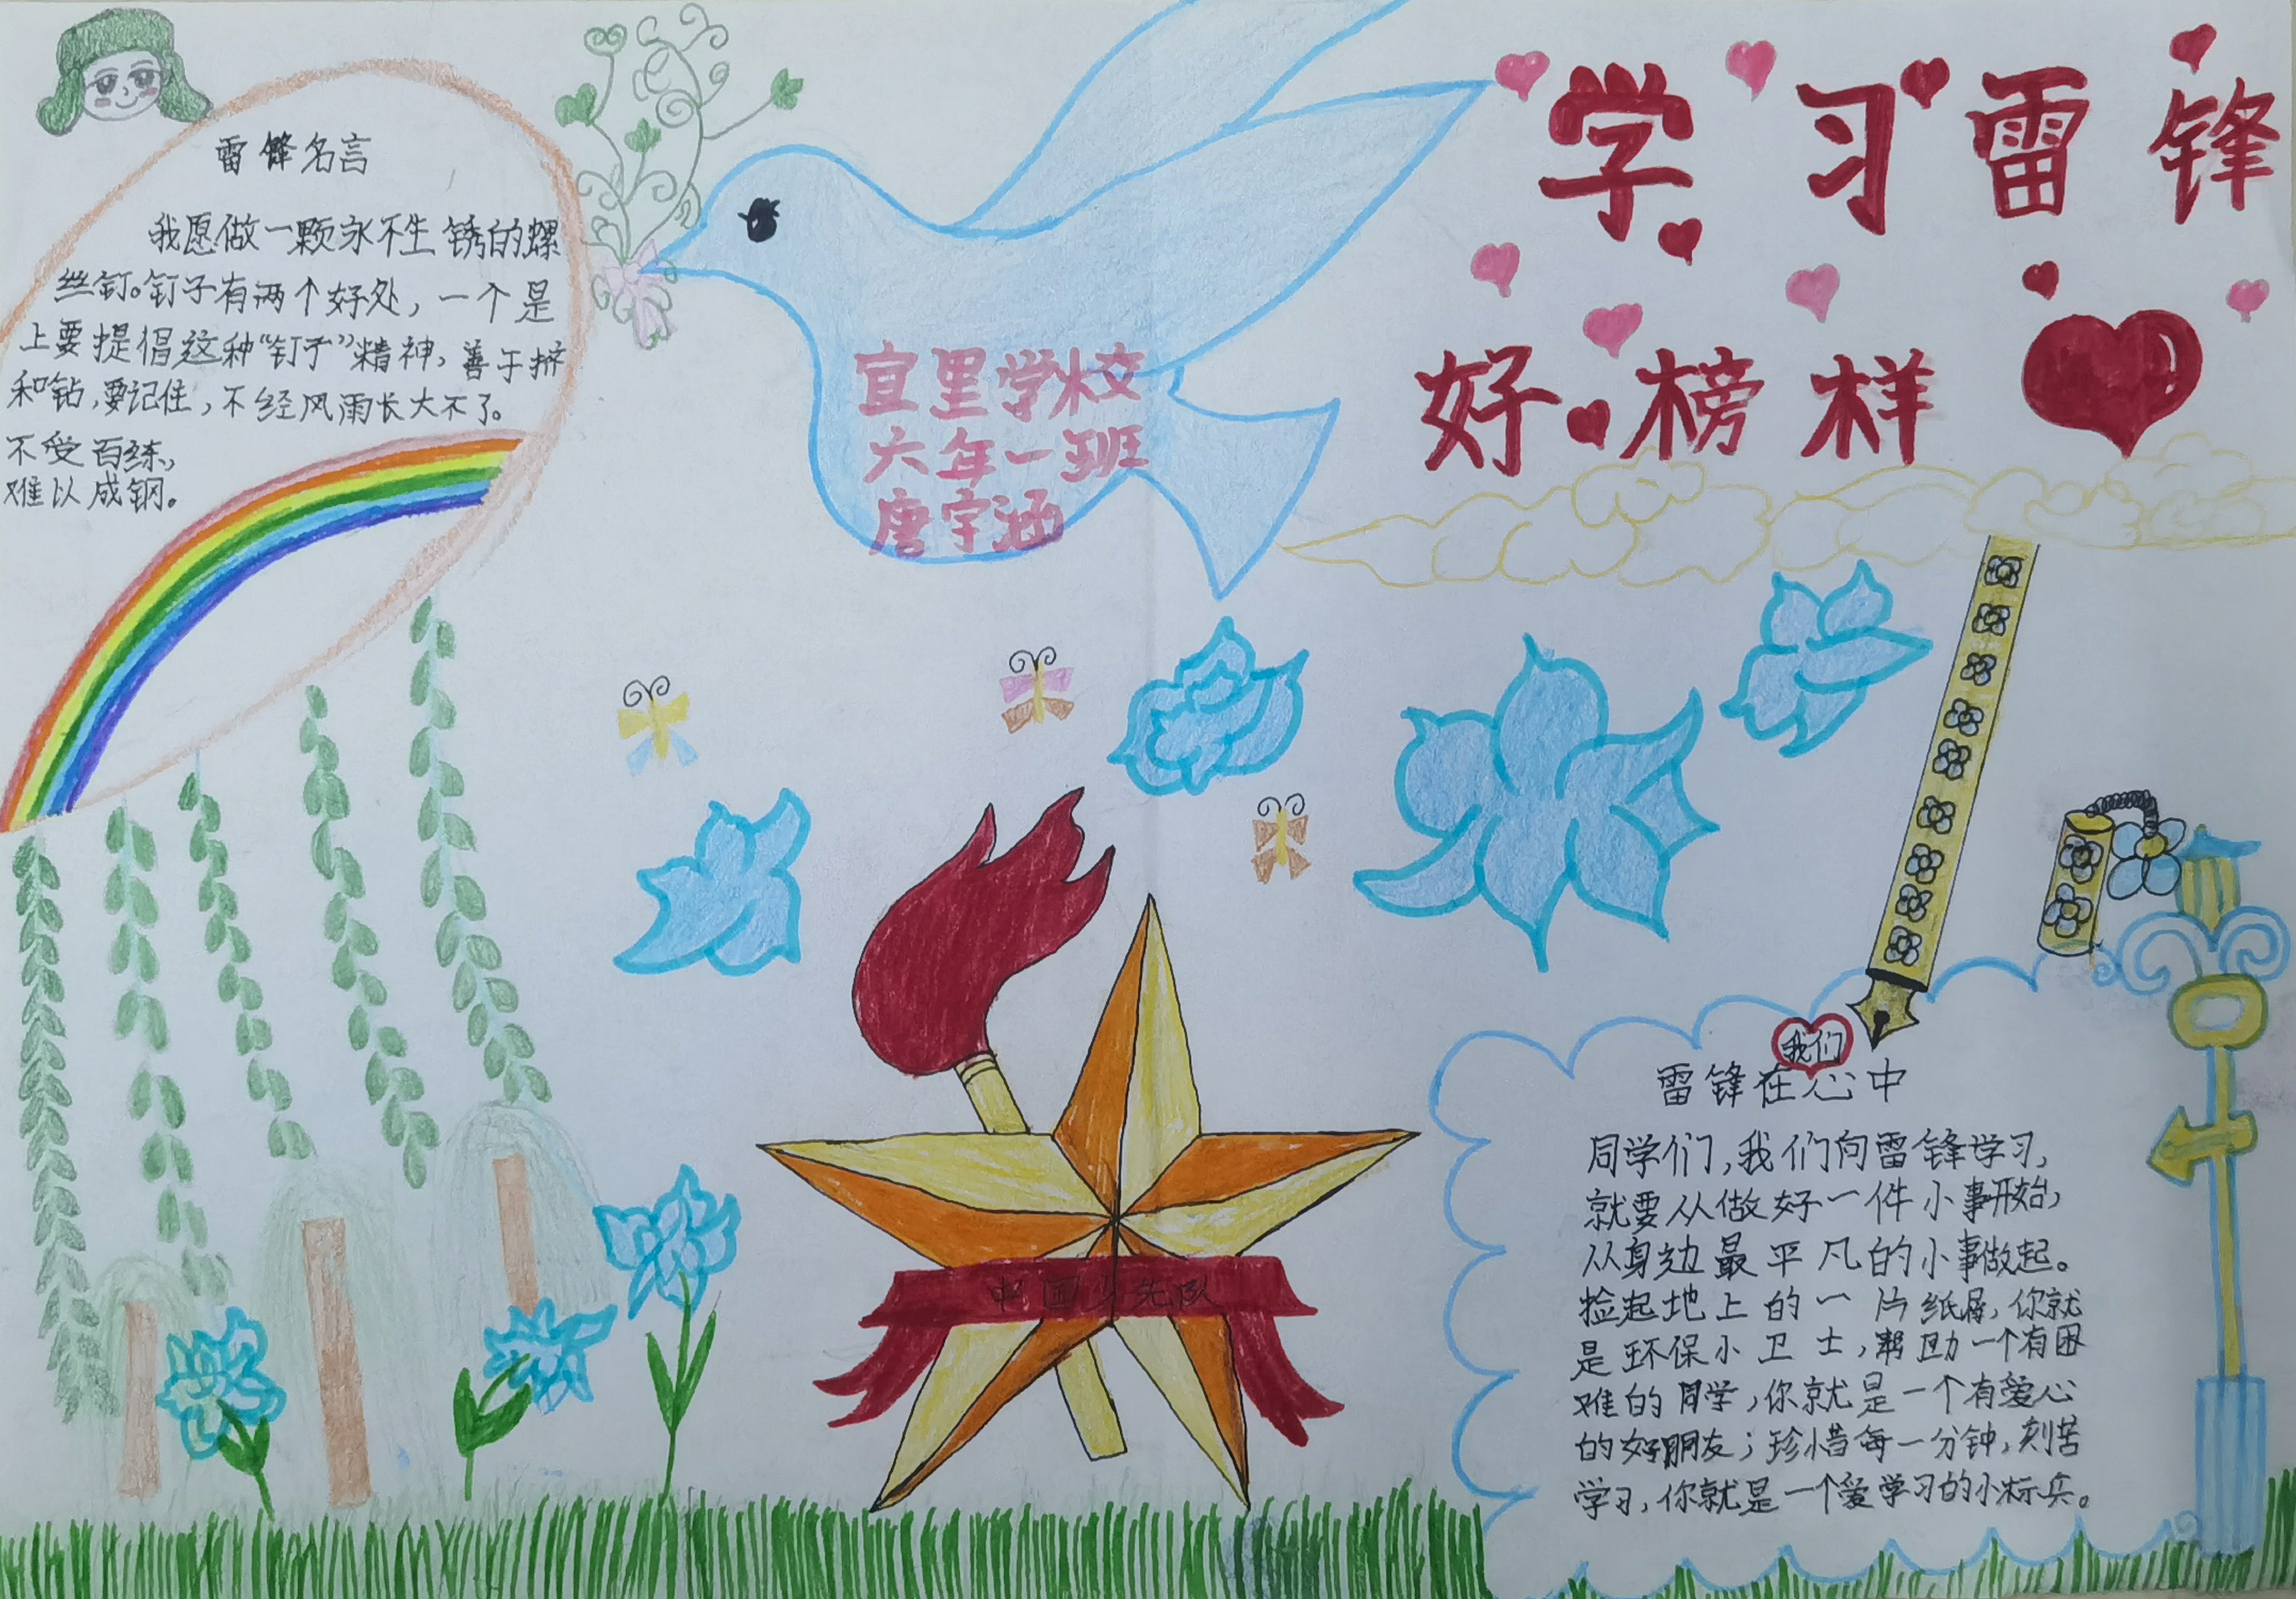 学习雷锋
好榜样
雷锋名言
我愿做一颗永不生锈的螺
丝钉。钉子有两个好处，一个是
上要提倡这种“钉子”精神，善于挤
和钻，要记住，不经风雨长大不了。
不受百练，
难以成钢。
宜里学校
六年一班
唐宇涵
中国少先队
我们
雷锋在心中
同学们，我们向雷锋学习，
就要从做好一件小事开始，
从身边最平凡的小事做起。
捡起地上的一片纸屑，你就
是环保小卫士，帮助一个有困
难的同学，你就是一个有爱心
的好朋友；珍惜每一分钟，刻苦
学习，你就是一个爱学习的小标兵。